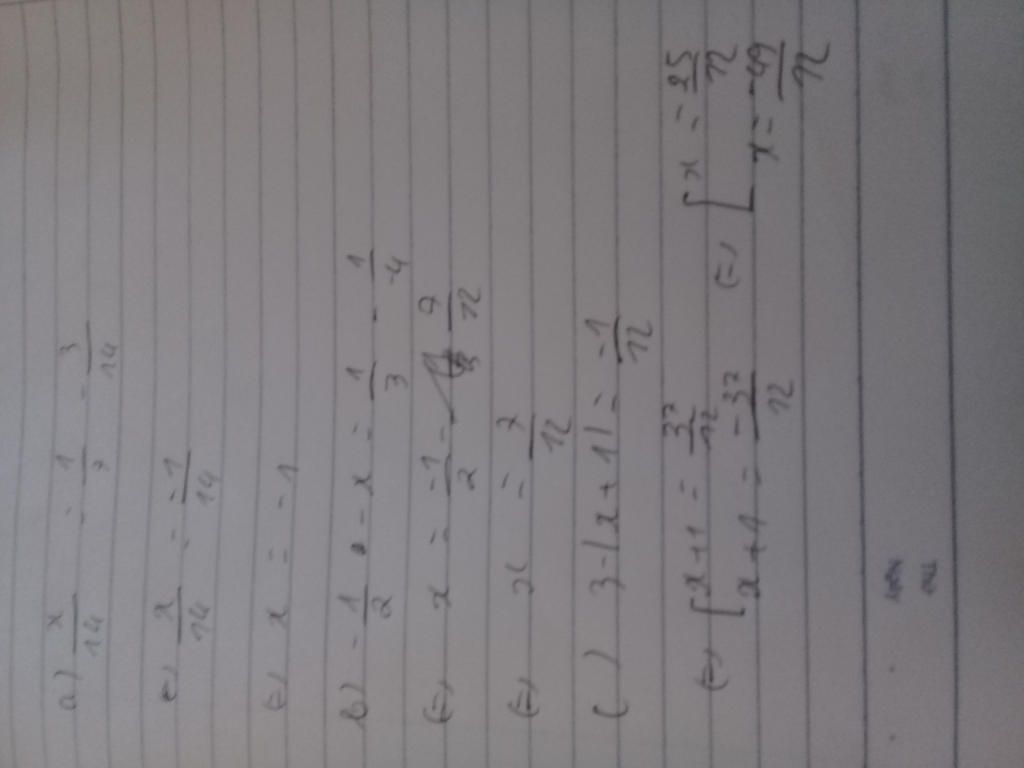 a) x/14 = 1/7 - 3/14
(=) x/14 = -1/14
(=) x = -1
b) -1/2 - x = 1/3 - 1/-4
(=) x = -1/2 - 7/12
(=) x = 7/12
c) 3 - |x + 1| = -1/12
(=) [ x + 1 = 37/12 (=) [ x = 25/12
x + 1 = -37/12 x = -49/12